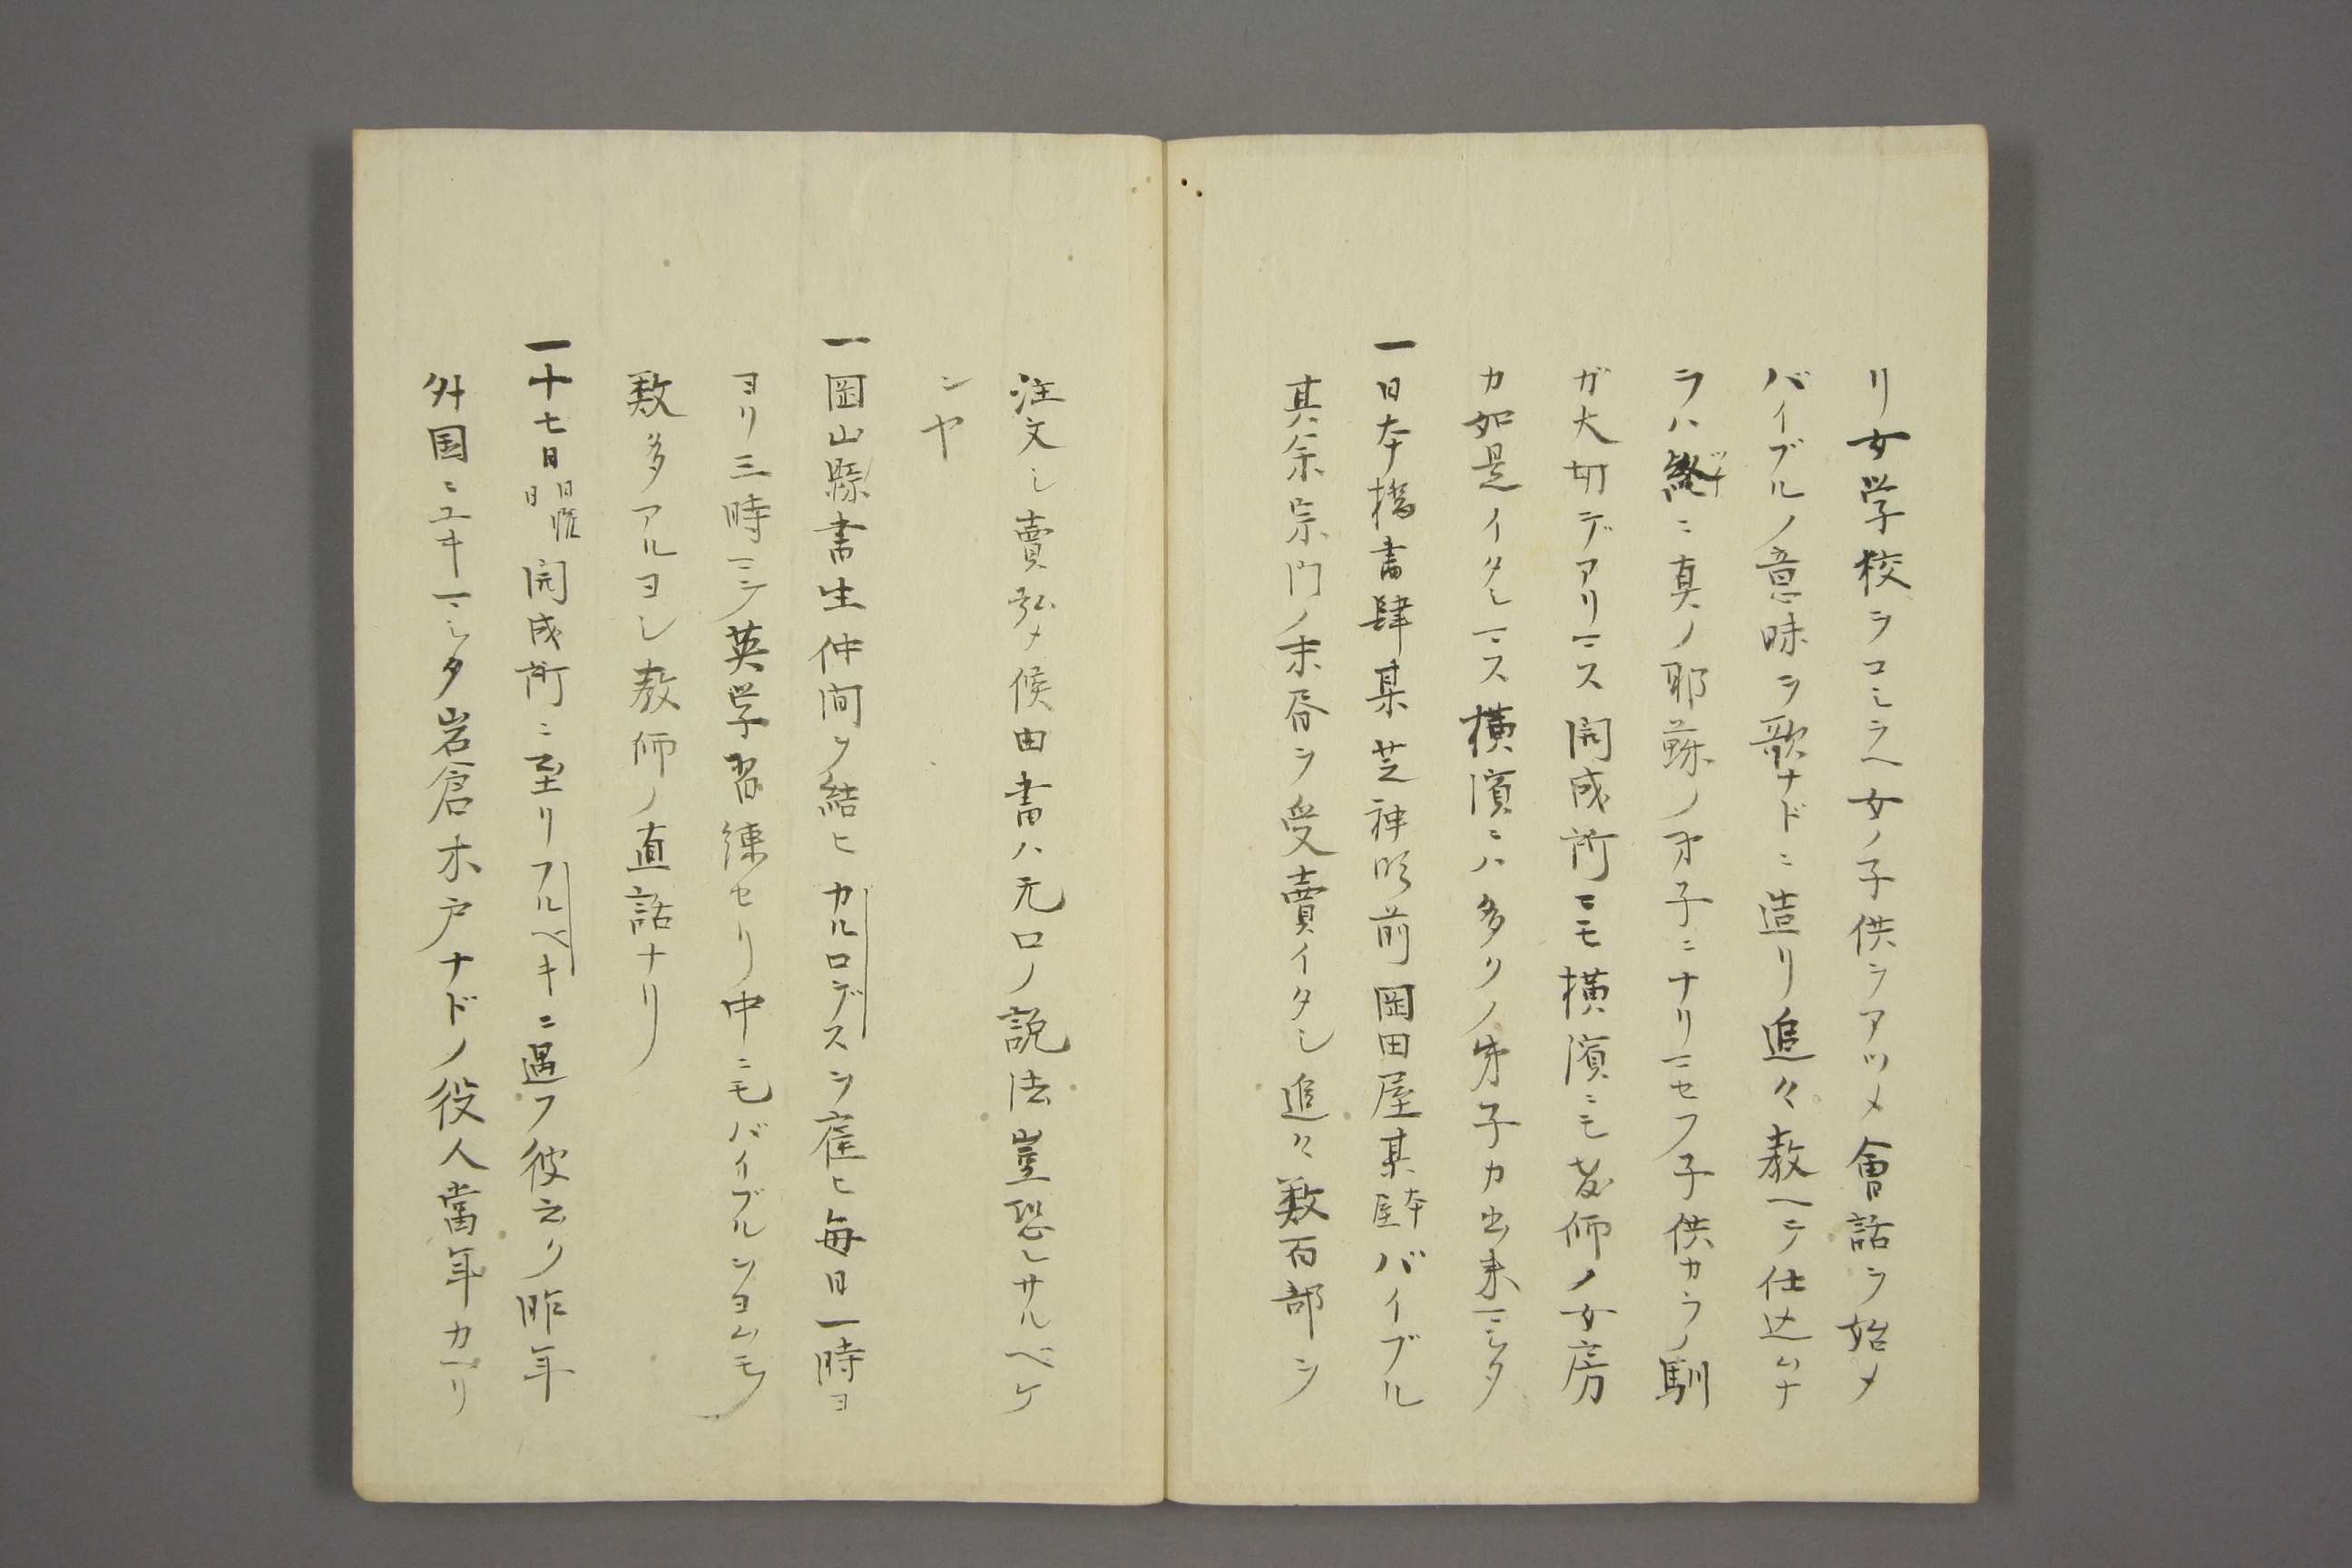 リ女学校ヲコシラヘ女ノ子供ヲアツメ會話ヲ始メ
バイブルノ意味ヲ歌ナドニ造リ追々教ヘテ仕込ムナ
ラハ終ニ真ノ耶蘇ノ弟子ニナリマセフ子供カラノ馴
ガ大切デアリマス開成所ニモ横濱ニモ教師ノ女房
カ如是イタシマス横濱ニハ多クノ弟子カ出来マシタ
一日本橋書肆某芝神明前岡田屋某本屋バイブル
其余宗門ノ末書ヲ受賣イタシ追々数百部ヲ
注文シ賣弘メ候由書ハ元ロノ説法豈恐レサルベケ
ンヤ
一岡山縣書生仲間ヲ結ヒカルロデスヲ雇ヒ毎日一時ヨ
ヨリ三時マテ英学習練セリ中ニモバイブルヲヨムモノ
数多アルヨシ教師ノ直話ナリ
一十七日日曜日開成所ニ至リフルベキニ遇フ彼云ク昨年
外国ニユキマシタ岩倉木戸ナドノ役人當年カヘリ